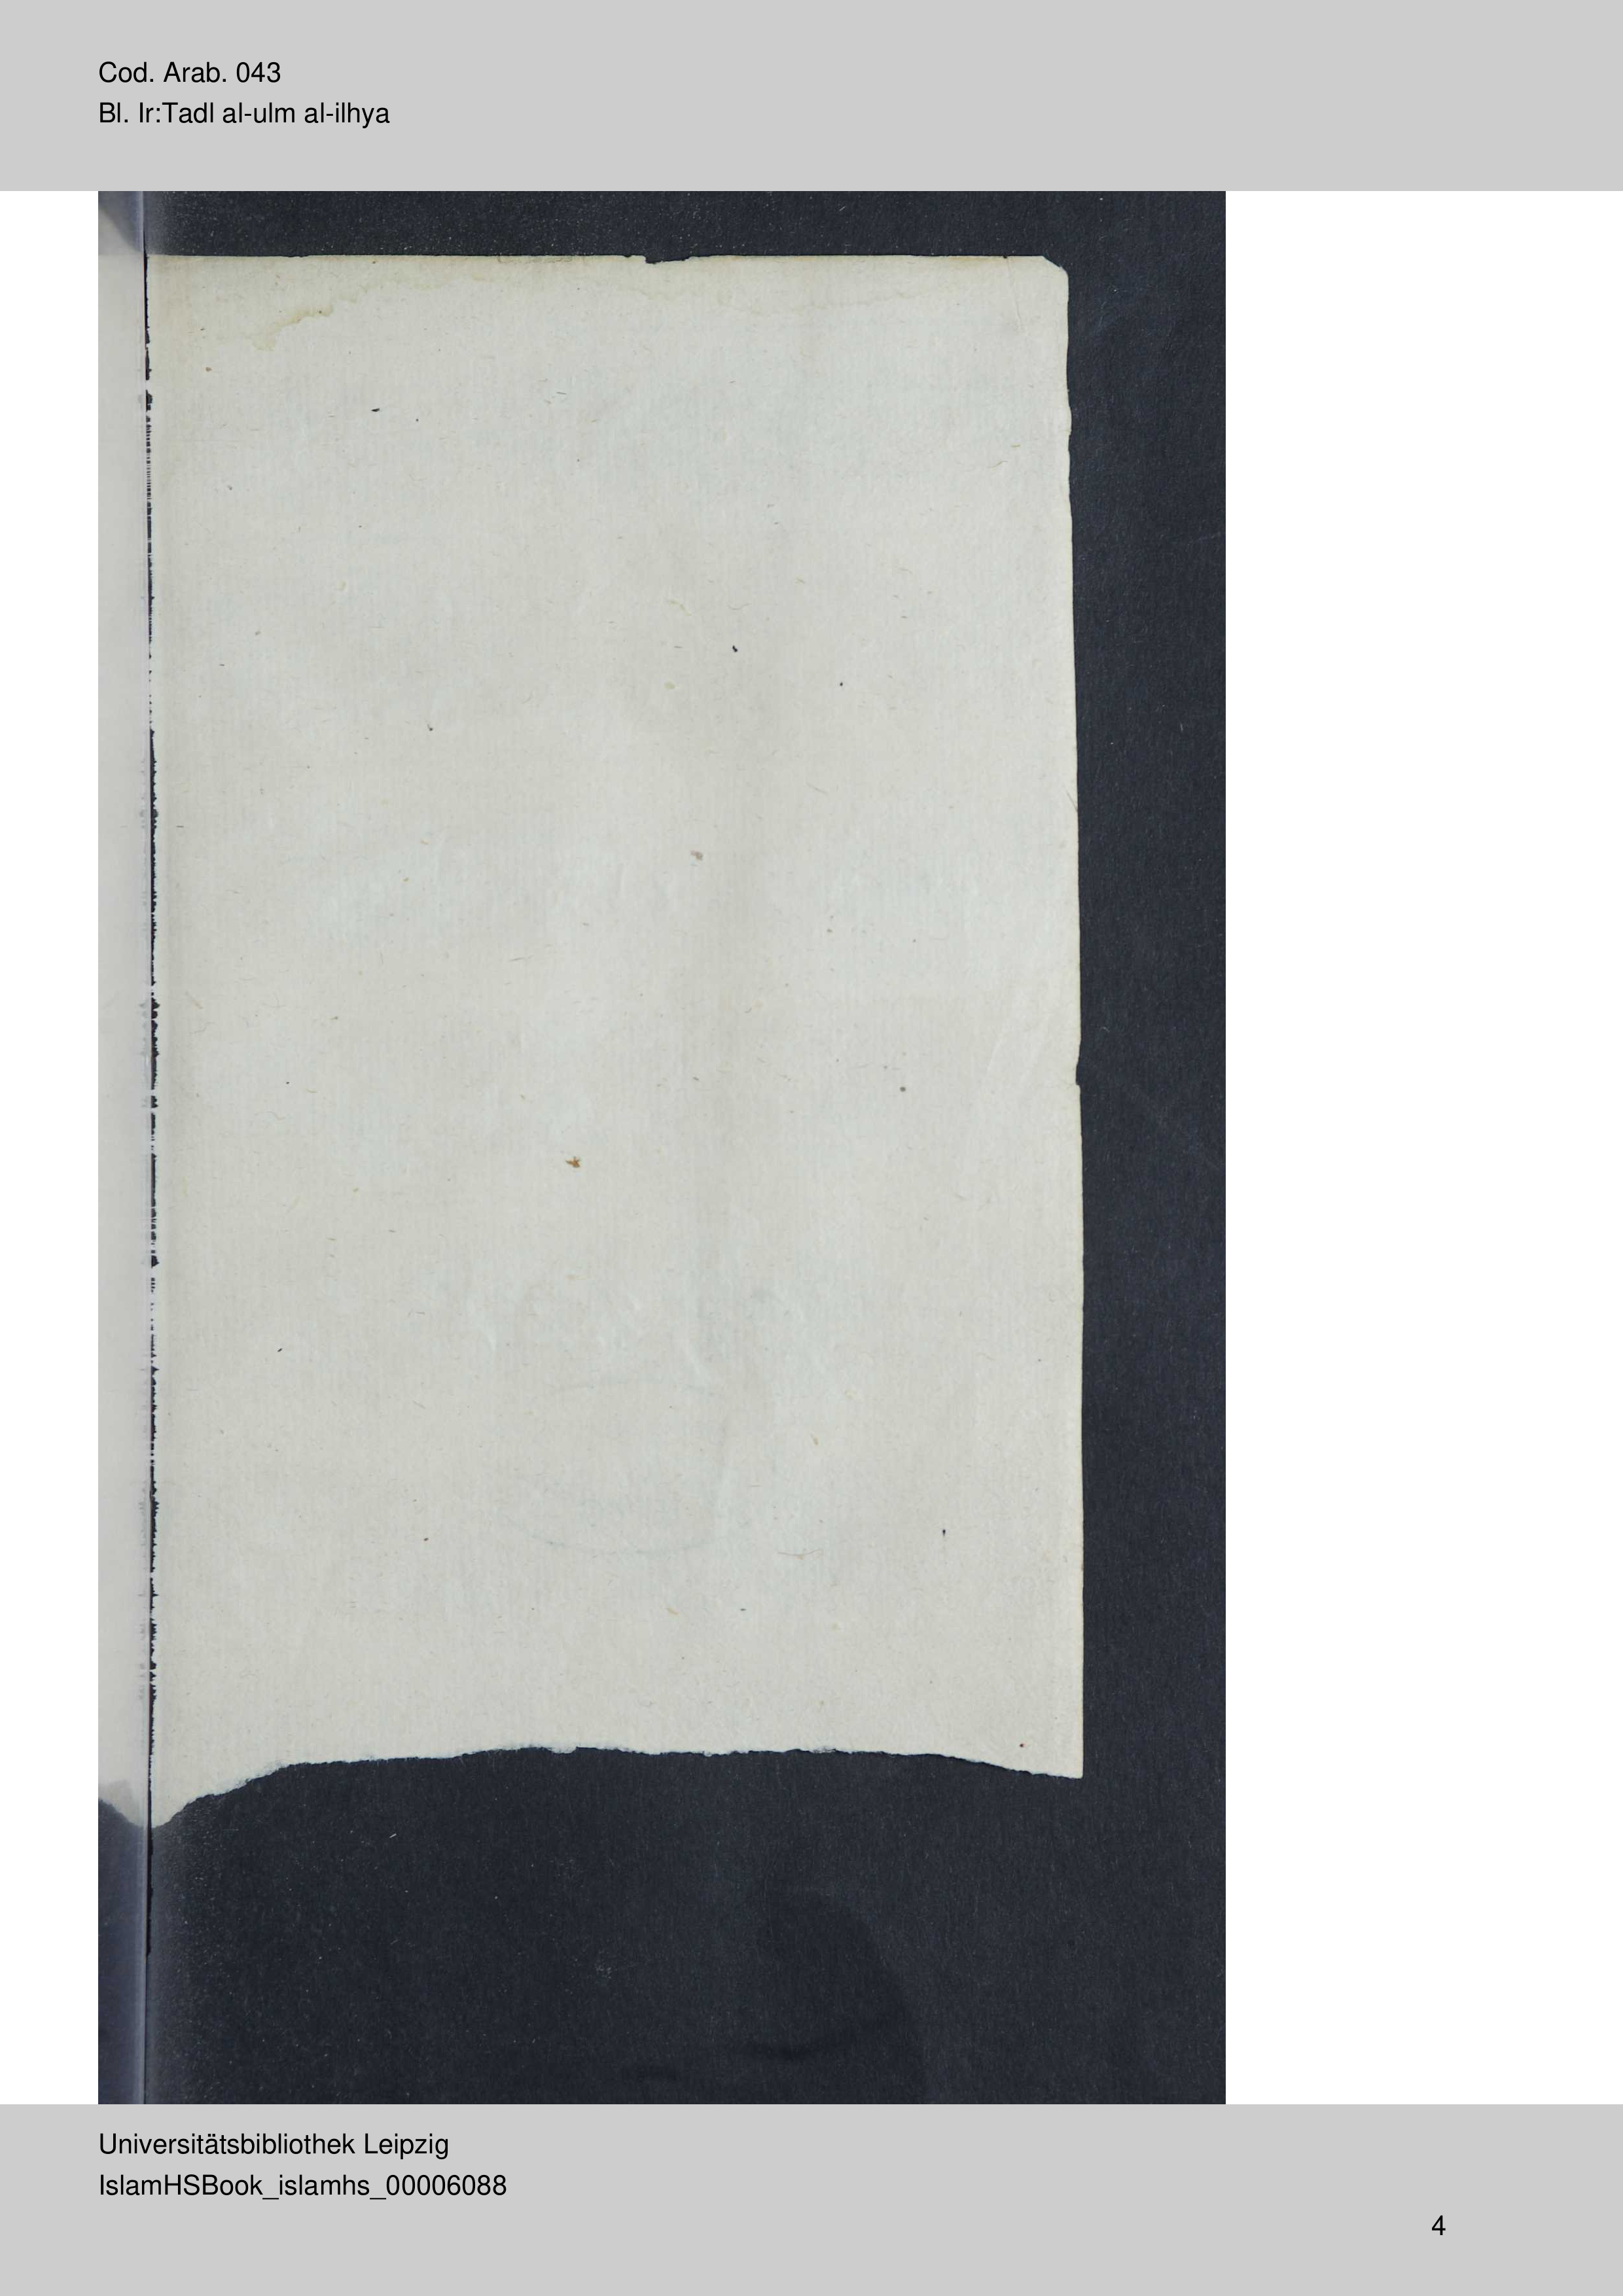 Cod. Arab. 043
Bl. Ir:Tadl al-ulm al-ilhya
Universitätsbibliothek Leipzig
IslamHSBook_islamhs_00006088
4